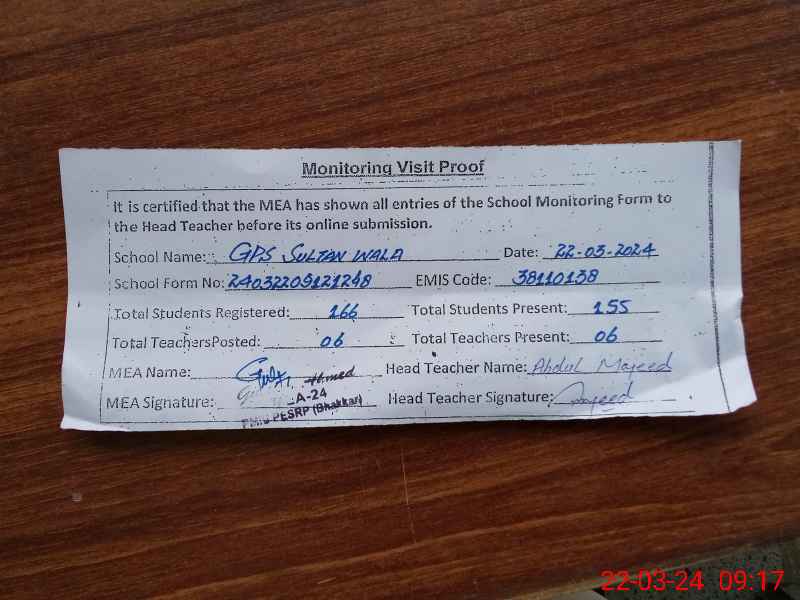 Monitoring Visit Proof
It is certified that the MEA has shown all entries of the School Monitoring Form to
the Head Teacher before its online submission.
School Name: GPS SULTAN WALA Date: 22-03-2024
School Form No: EMIS Code: 38110138
Total Students Registered: 166 Total Students Present: 155
Total TeachersPosted: 06 Total Teachers Present: 06
MEA Name: Head Teacher Name: Abdul Majeed
MEA Signature: A-24 Head Teacher Signature: Majeed
PMIU PESRP (Bhakkar)
22-03-24 09:17